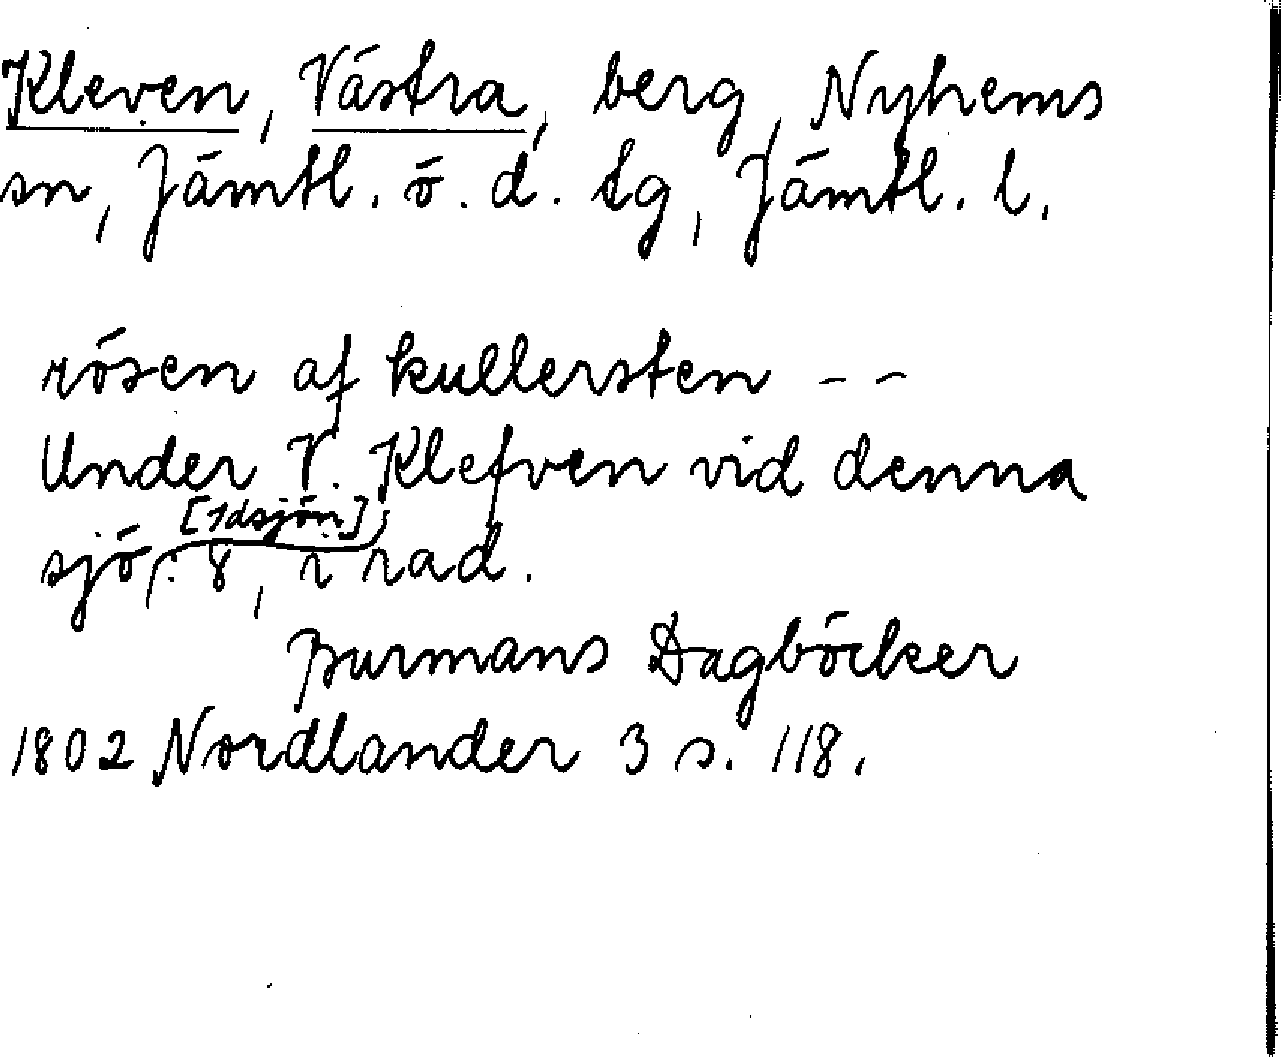 Kleven, Västra, berg, Nyhems
sn, Jämtl. ö. d. tg, Jämtl. l.
rösen af kullersten - -
Under V. Klefven vid denna
[Idsjön]
sjö: 8, i rad.
Burmans Dagböcker
1802 Nordlander 3 s. 118.